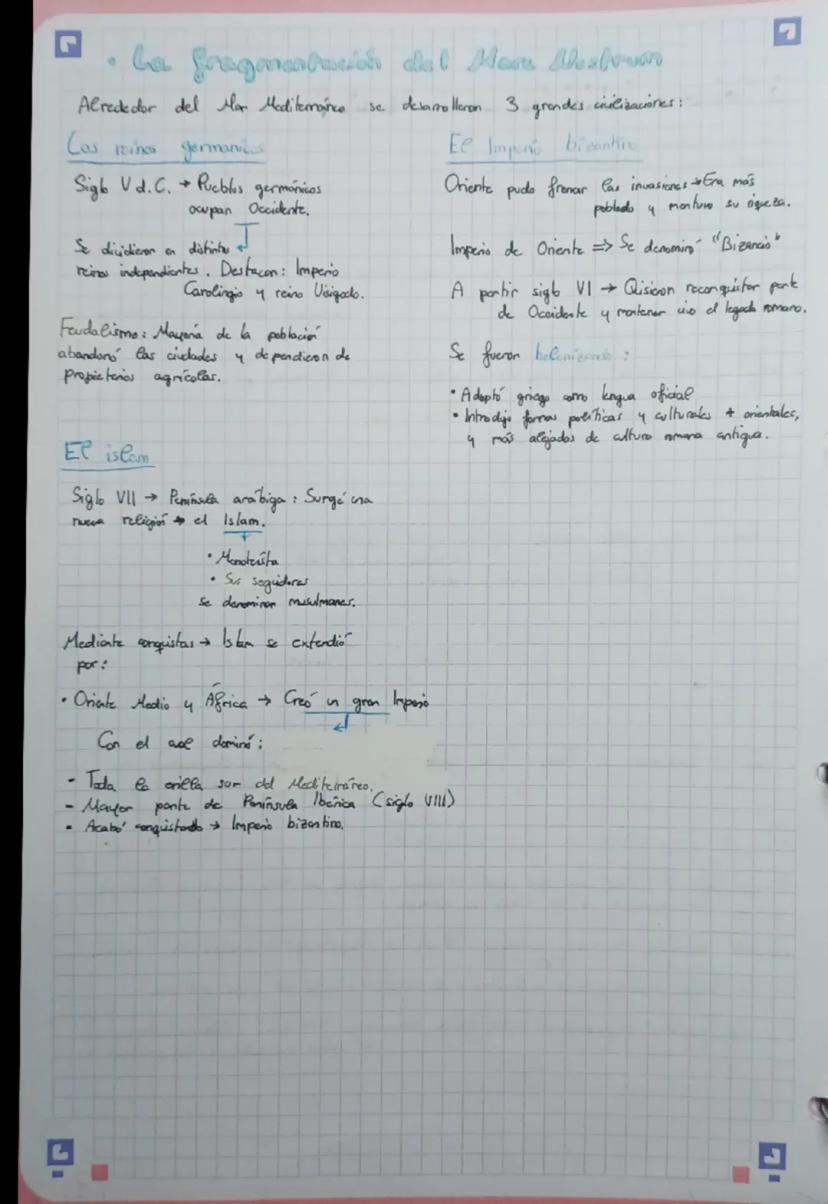 · La fragmentación del Mare Nostrum
Alrededor del Mar Mediterráneo se desarrollaron 3 grandes civilizaciones:
Los reinos germanicos
Siglo V d.C. → Pueblos germánicos
ocupan Occidente.
Se dividieron en distintos
reinos independientes. Destacan: Imperio
Carolingio y reino Visigodo.
Feudalismo: Mayoría de la población
abandonó las ciudades y dependieron de
propietarios agrícolas.
El Imperio bizantino
Oriente pudo frenar las invasiones → Era más
poblado y mantuvo su riqueza.
Imperio de Oriente => Se denominó "Bizancio"
A partir siglo VI → Quisieron reconquistar parte
de Occidente y mantener vivo el legado romano.
Se fueron helenizando:
· Adoptó griego como lengua oficial
· Introdujo formas políticas y culturales + orientales,
y más alejados de cultura romana antigua.
El islam
Siglo VII → Península arábiga: Surge una
nueva religión → el Islam.
· Monoteísta
· Sus seguidores
se denominan musulmanes.
Mediante conquistas → Islam se extendió
por:
· Oriente Medio y África → Creó un gran Imperio
Con el que dominó:
- Toda la orilla sur del Mediterráneo.
- Mayor parte de Península Ibérica (siglo VIII)
- Acabó conquistando → Imperio bizantino.